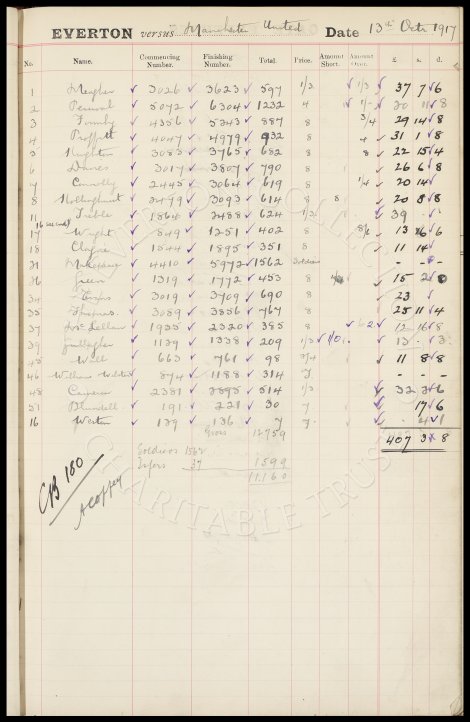 EVERTON versus Manchester United Date 13th Octr 1917
No. Name. Commencing Number. Finishing Number. Total. Price. Amount Short. Amount Over. £ s. d.
1 Meagher 3026 3623 597 1/3 1/3 37 7 6
2 Percival 5072 6304 1232 4 1/- 20 11 8
3 Formby 4356 5243 887 8 3/4 29 14 8
4 Proffitt 4047 4979 932 8 4 31 1 8
5 Heighton 3083 3765 682 8 8 22 15 4
6 3017 3807 790 8 26 6 8
7 Connolly 2445 3064 619 8 1/4 20 14
8 2479 3093 614 8 8 20 8 8
11 1864 2488 624 1/3 39
(6 second)
17 Wright 849 1251 402 8 8/6 13 16 6
18 Clague 1544 1895 351 8 11 14
31 4410 5972 1562 Soldiers - - -
36 Green 1319 1772 453 8 15 2
34 3019 3709 690 8 23
35 Thomas 3089 3856 767 8 25 11 4
37 1935 2320 385 8 12 16 8
39 Gallagher 1129 1338 209 1/3 1/0 13 3
45 Will 663 761 98 2/4 11 8 8
46 William 874 1188 314
48 2381 2895 514 1/3 32 3 6
51 Blundell 191 221 30 7 17 6
16 Weston 129 136 7 7 4 1
Gross 12759 407 3 8
Soldiers 1562
37 1599
11160
CB 180